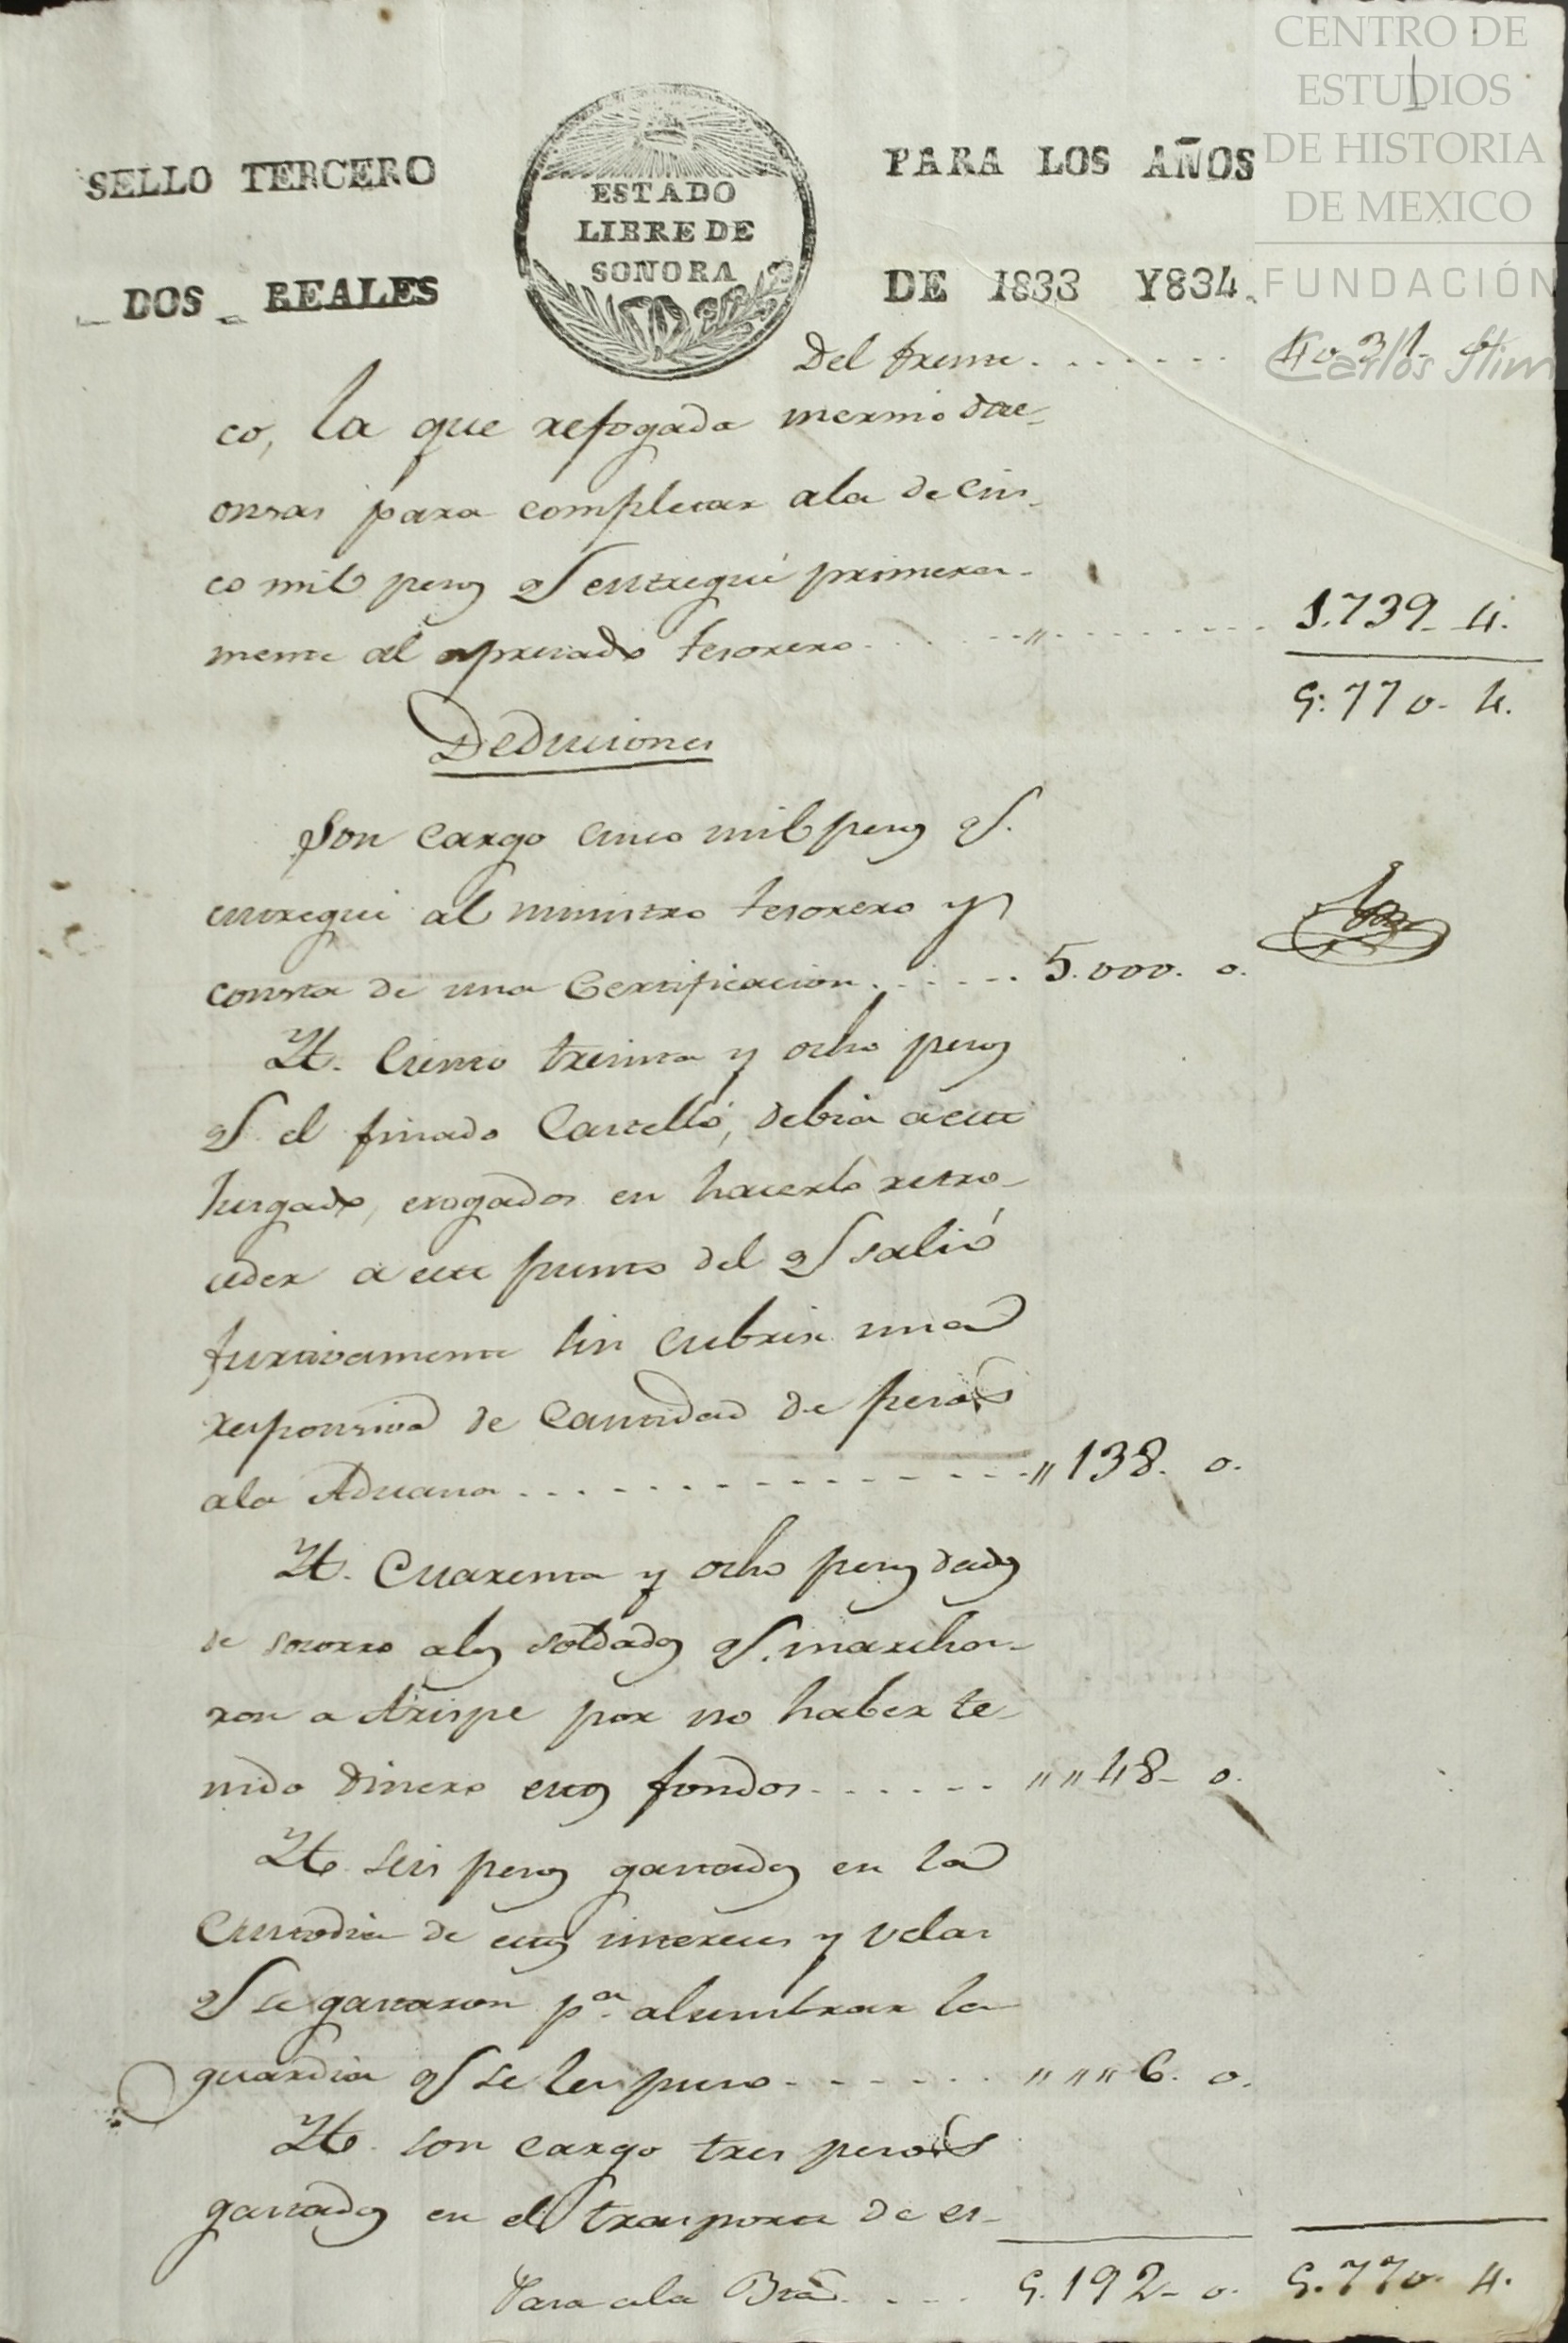 CENTRO DE
ESTUDIOS
DE HISTORIA
DE MEXICO
FUNDACIÓN
Carlos Slim
SELLO TERCERO PARA LOS AÑOS
ESTADO
LIBRE DE
SONORA
DOS REALES DE 1833 Y834.
Del frente....... 4031. 0
co, la que refogada mermó doce
onsas para completar ala de cin-
co mil pesos q. entregué primera-
mente al apresiado tesorero..... „ ........ 1.739. 4.
5.770. 4.
Deducciones
Son cargo cinco mil pesos q.
entregué al ministro tesorero y
consta de una Certificacion...... 5.000. 0.
Yt. Ciento treinta y ocho pesos
q. el finado Castelló, debia a este
Jusgado, erogados en hacerlo retro-
ceder a este punto del q. salió
furtivamente sin cubrir una
responsiva de cantidad de pesos
ala Aduana............ „ 138. 0.
Yt. Cuarenta y ocho pesos dados
de socorro alos soldados q. marcha-
ron a Arispe por no haber te-
nido dinero estos fondos...... „ „ 48. 0.
Yt. seis pesos gastados en la
Custodia de estos intereses y velas
q. se gastaron pa. alumbrar la
guardia q. se les puso...... „ „ „ 6. 0.
Yt. son cargo tres pesos
gastados en el trasporte de es-
Pasa ala Bta.... 5.192. 0. 5.770. 4.